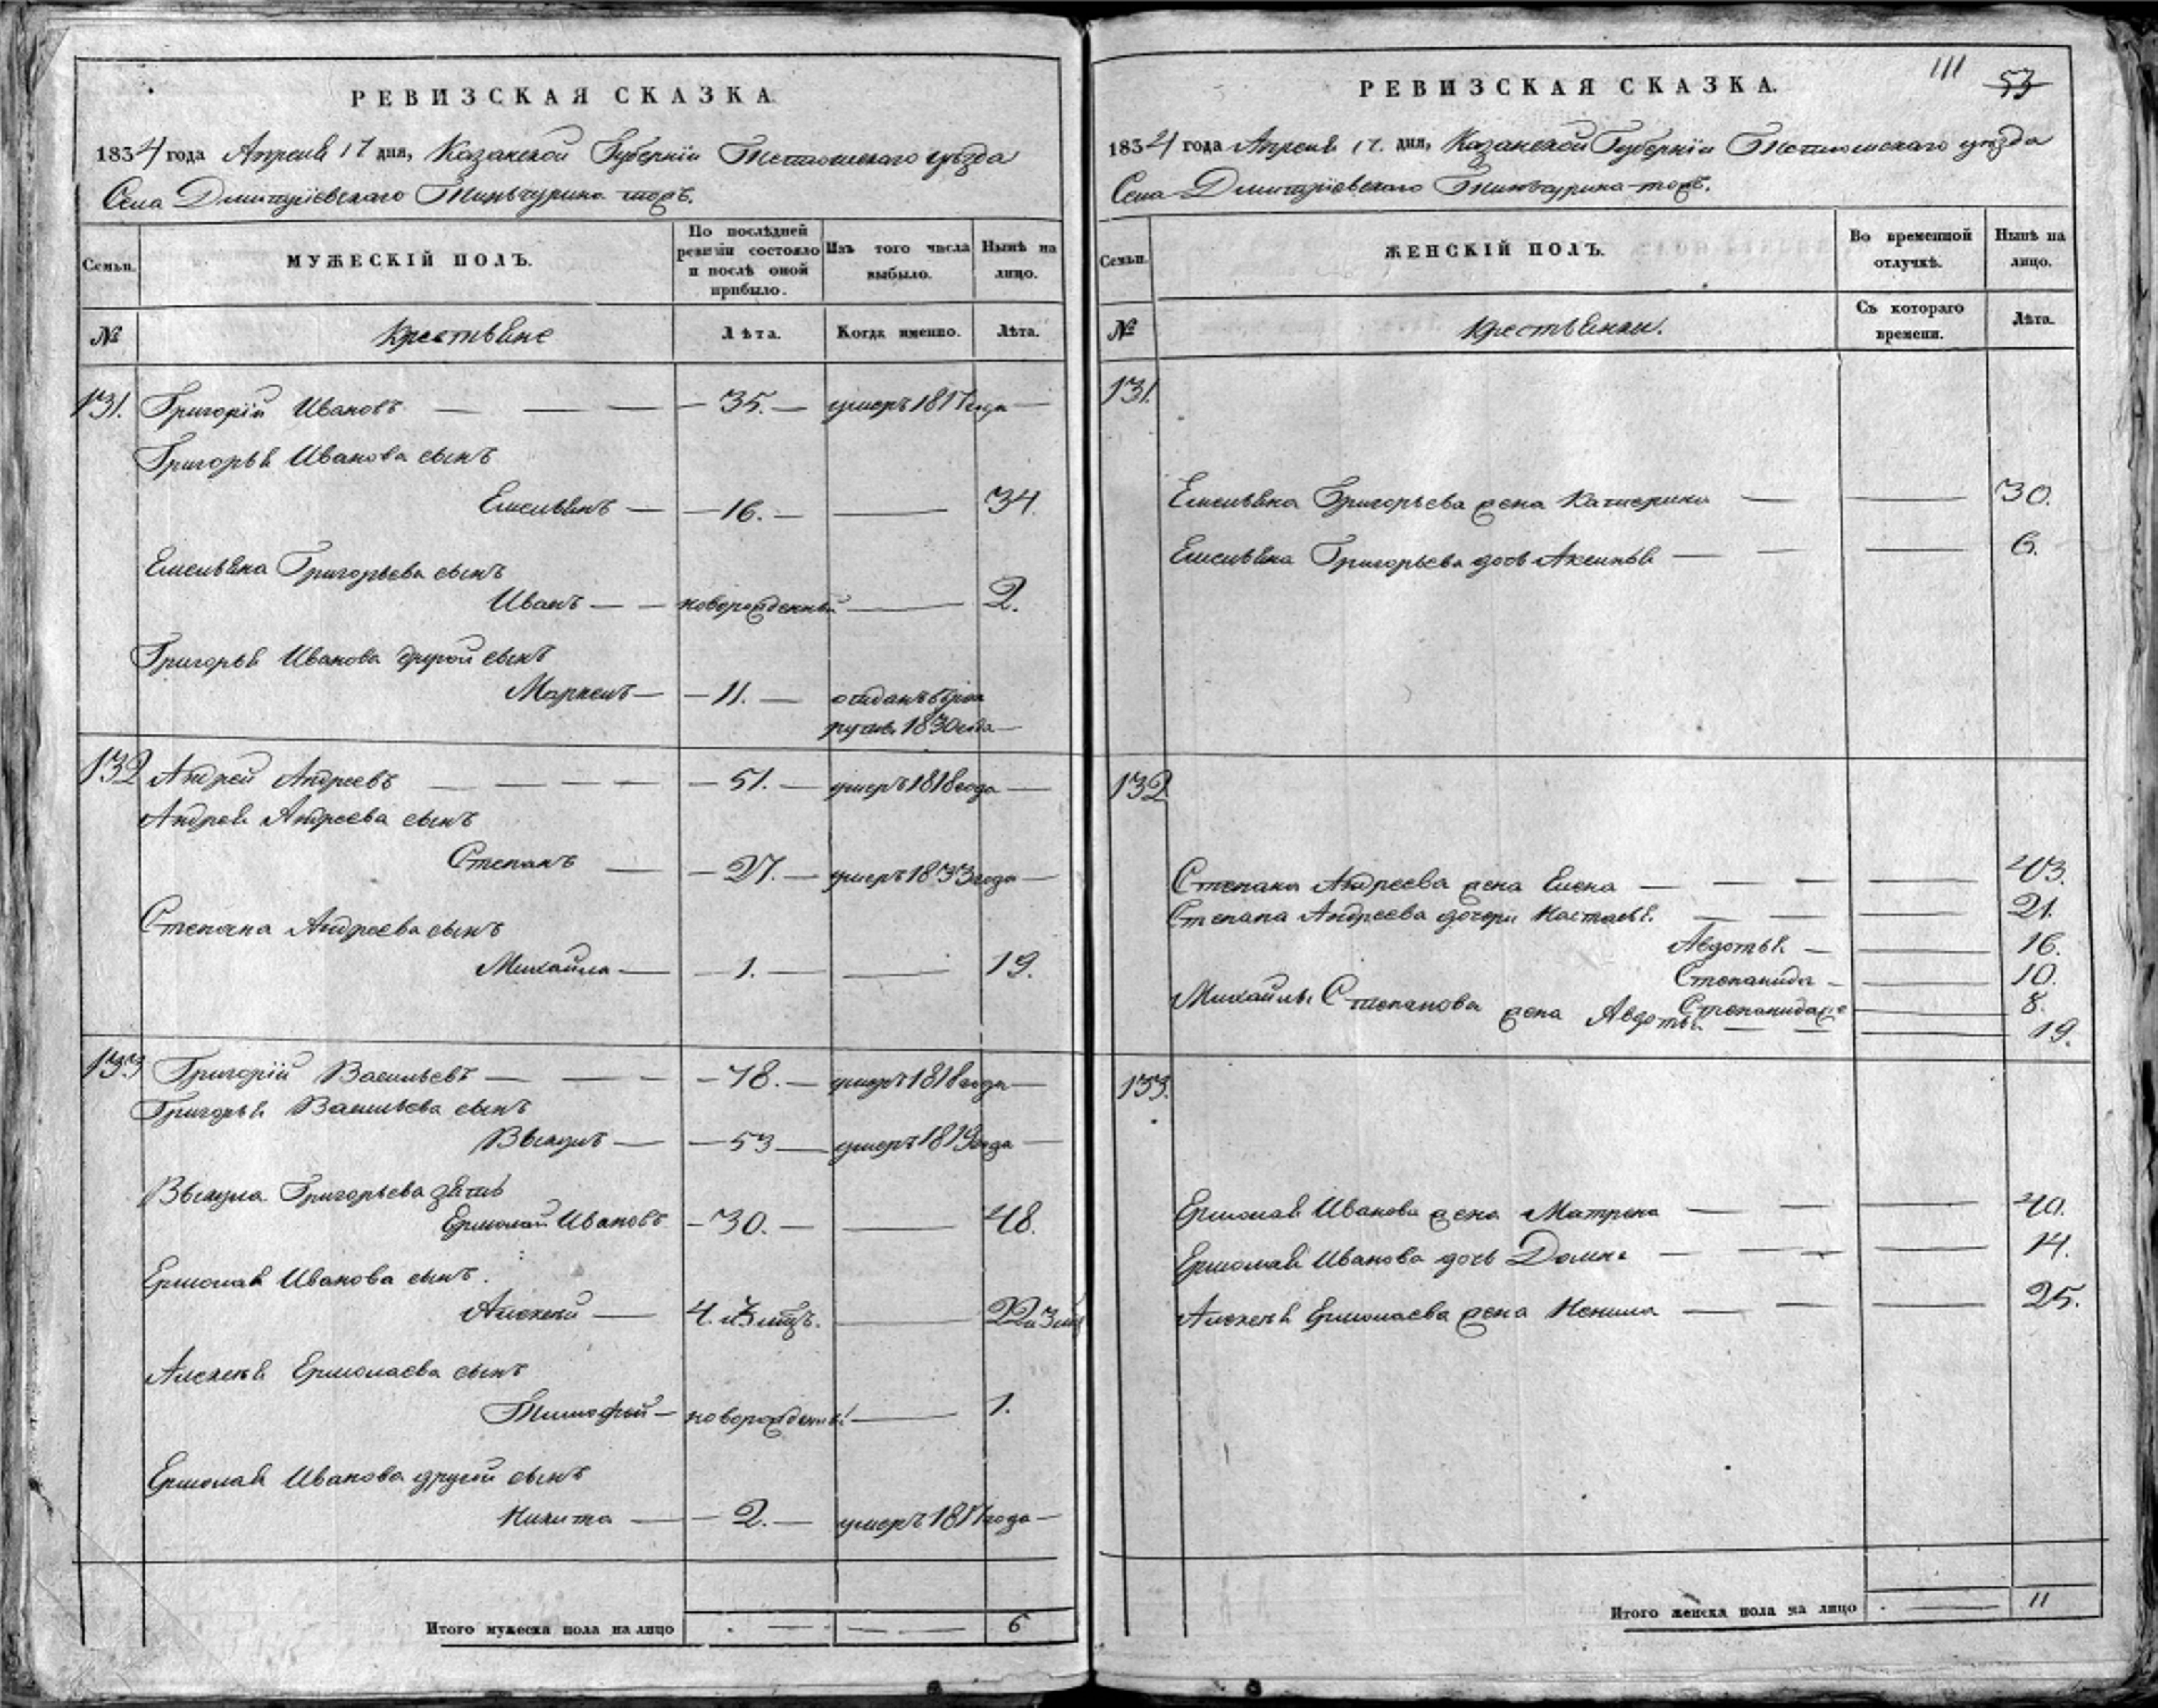 РЕВИЗСКАЯ СКАЗКА.
1834 года Апреля 17 дня, Казанской Губернiи Тетюшскаго уѣзда
Села Дмитрiевскаго Тиньчурина тожъ.
Семьи.
МУЖЕСКІЙ ПОЛЪ.
По послѣдней ревизіи состояло и послѣ оной прибыло.
Изъ того числа выбыло.
Нынѣ на лицо.
№
Крестьяне
Лѣта.
Когда именно.
Лѣта.
131. Григорiй Ивановъ — 35. — умеръ 1817 года —
Григорья Иванова сынъ
Емельянъ — 16. — 34.
Емельяна Григорьева сынъ
Иванъ — новорожденный — 2.
Григорья Иванова другой сынъ
Маркелъ — 11. — отданъ въ рек
руты 1830 года —
132 Андрей Андреевъ — 51. — умеръ 1818 года —
Андрея Андреева сынъ
Степанъ — 27. — умеръ 1833 года —
Степана Андреева сынъ
Михайла — 1. — 19.
133 Григорiй Васильевъ — 78. — умеръ 1818 года —
Григорья Васильева сынъ
Викулъ — 53 — умеръ 1819 года —
Викула Григорьева зять
Ермолай Ивановъ — 30. — 48.
Ермолая Иванова сынъ.
Алексей — 4. и 3 мцъ. — 22 и 3 мц
Алексея Ермолаева сынъ
Тимофей — новорожденный — 1.
Ермолая Иванова другой сынъ
Никита — 2. — умеръ 1817 года —
Итого мужеска пола на лицо — — 6
111 53
РЕВИЗСКАЯ СКАЗКА.
1834 года Апреля 17. дня, Казанской Губернiи Тетюшскаго уѣзда
Села Дмитрiевскаго Тиньчурина тожъ.
Семьи.
ЖЕНСКІЙ ПОЛЪ.
Во временной отлучкѣ.
Нынѣ на лицо.
№
Крестьянки.
Съ котораго времени.
Лѣта.
131.
Емельяна Григорьева жена Катерина — — 30.
Емельяна Григорьева дочь Аксинья — — 6.
132
Степана Андреева жена Елена — — 43.
Степана Андреева дочери Настасья. — — 21.
Авдотья. — — 16.
Степанида — — 10.
Степанида же — 8.
Михайлы Степанова жена Авдотья — — 19.
133.
Ермолая Иванова жена Матрена — — 40.
Ермолая Иванова дочь Домна — — 14.
Алексея Ермолаева жена Ненила — — 25.
Итого женска пола на лицо — 11